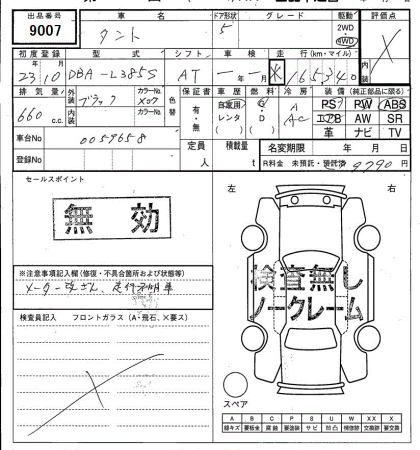 出品番号 車名 ドア形状 グレード 駆動 評価点
9007 タント 5 2WD 4WD ×
初度登録 型式 シフト 車検 走行(km・マイル) 内装
23年10月 DBA-L385S AT 年 月 ※ 16534 ×
排気量 外装 ブラック カラーNo. X07 色替 保証書 車歴 燃料 冷房 装備(純正部品に限る)
660 c.c. 内装 カラーNo. 有・無 自家用 レンタ G・D A AC PS PW ABS
エアB AW SR
革 ナビ TV
車台No 0057658 定員 人 積載量 t 名変期限 年 月 日
登録No R料金 未預託・預託済 9790円
セールスポイント
無効
左 右
※注意事項記入欄(修復・不具合箇所および状態等)
メーター改ざん、走行不明車
検査無し
ノークレーム
検査員記入 フロントガラス(A・飛石、×要ス)
スペア
A B C P S U W X XX
線キズ 要板金 腐蝕 要塗装 サビ 凹凸 補修跡 交換跡 要交換